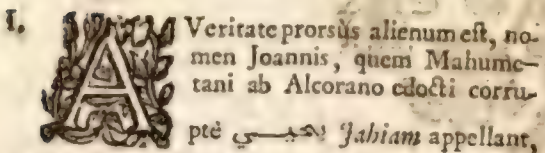 I. A Veritate prorsùs alienum eſt, no-
men Joannis, quem Mahume-
tani ab Alcorano edocti corru-
ptè يحيى Jahiam appellant,